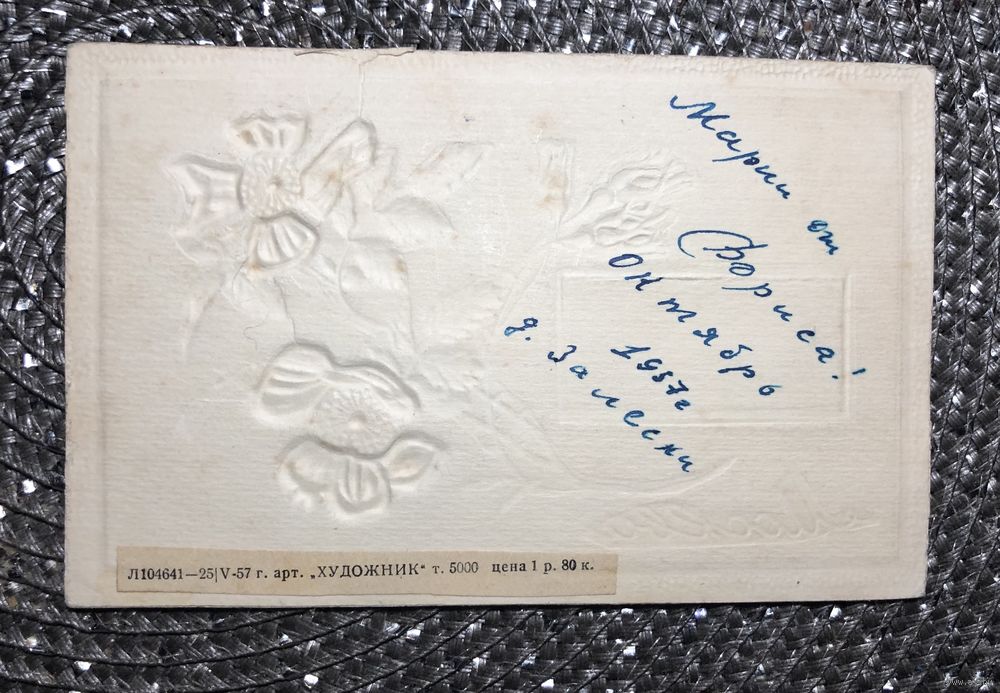 Марии от
Бориса!
октябрь
1957г
д. Залески
Л104641—25|V-57 г. арт. „ХУДОЖНИК“ т. 5000 цена 1 р. 80 к.